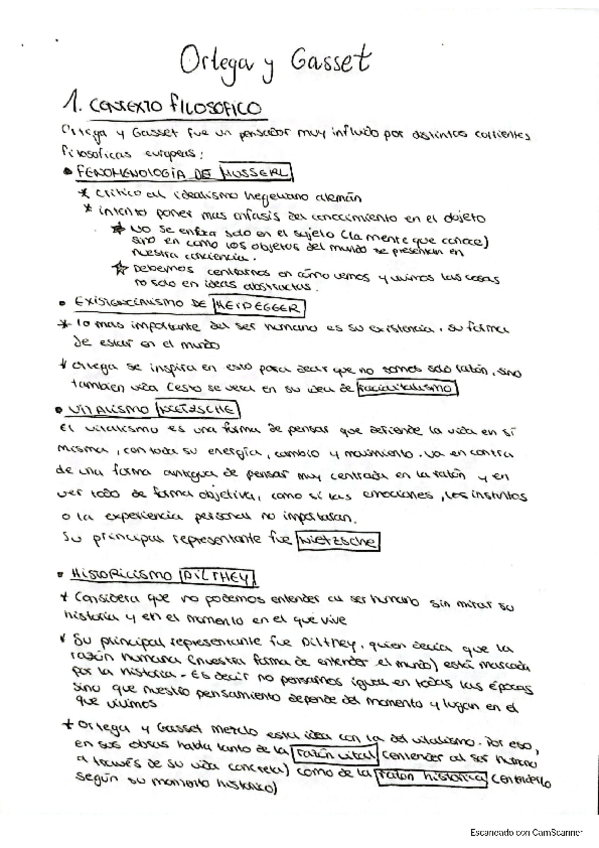 Ortega y Gasset
1. CONTEXTO FILOSOFICO
Ortega y Gasset fue un pensador muy influido por distintos corrientes
filosoficas europeas:
• FENOMENOLOGÍA DE HUSSERL
* Critico al idealismo hegeliano alemán
* intento poner mas enfasis del conocimiento en el objeto
☆ No se enfoca solo en el sujeto (la mente que conoce)
sino en como los objetos del mundo se presentan en
nuestra conciencia.
☆ Debemos centrarnos en cómo vemos y vivimos las cosas
no solo en ideas abstractas.
• EXISTENCIALISMO DE HEIDEGGER
* lo mas importante del ser humano es su existencia. su forma
de estar en el mundo
* Ortega se inspira en esto para decir que no somos solo razón, sino
tambien vida (esto se vera en su idea de raciovitalismo
• VITALISMO NIETZSCHE
El vitalismo es una forma de pensar que defiende la vida en sí
misma, con toda su energía, cambio y movimiento. va en contra
de una forma antigua de pensar muy centrada en la razón y en
ver todo de forma objetiva, como si las emociones, los instintos
o la experiencia personal no importaran.
Su principal representante fue NIETZSCHE
• HISTORICISMO DILTHEY
* Considera que no podemos entender al ser humano sin mirar su
historia y en el momento en el que vive
* Su principal representante fue Dilthey, quien decía que la
razón humana (nuestra forma de entender el mundo) está marcada
por la historia. Es decir no pensamos igual en todas las épocas
sino que nuestro pensamiento depende del momento y lugar en el
que vivimos
* Ortega y Gasset mezclo esta idea con la del vitalismo. Por eso,
en sus obras habla tanto de la razón vital (entender al ser humano
a través de su vida concreta) como de la razon historica (entenderlo
según su momento histórico)
Escaneado con CamScanner